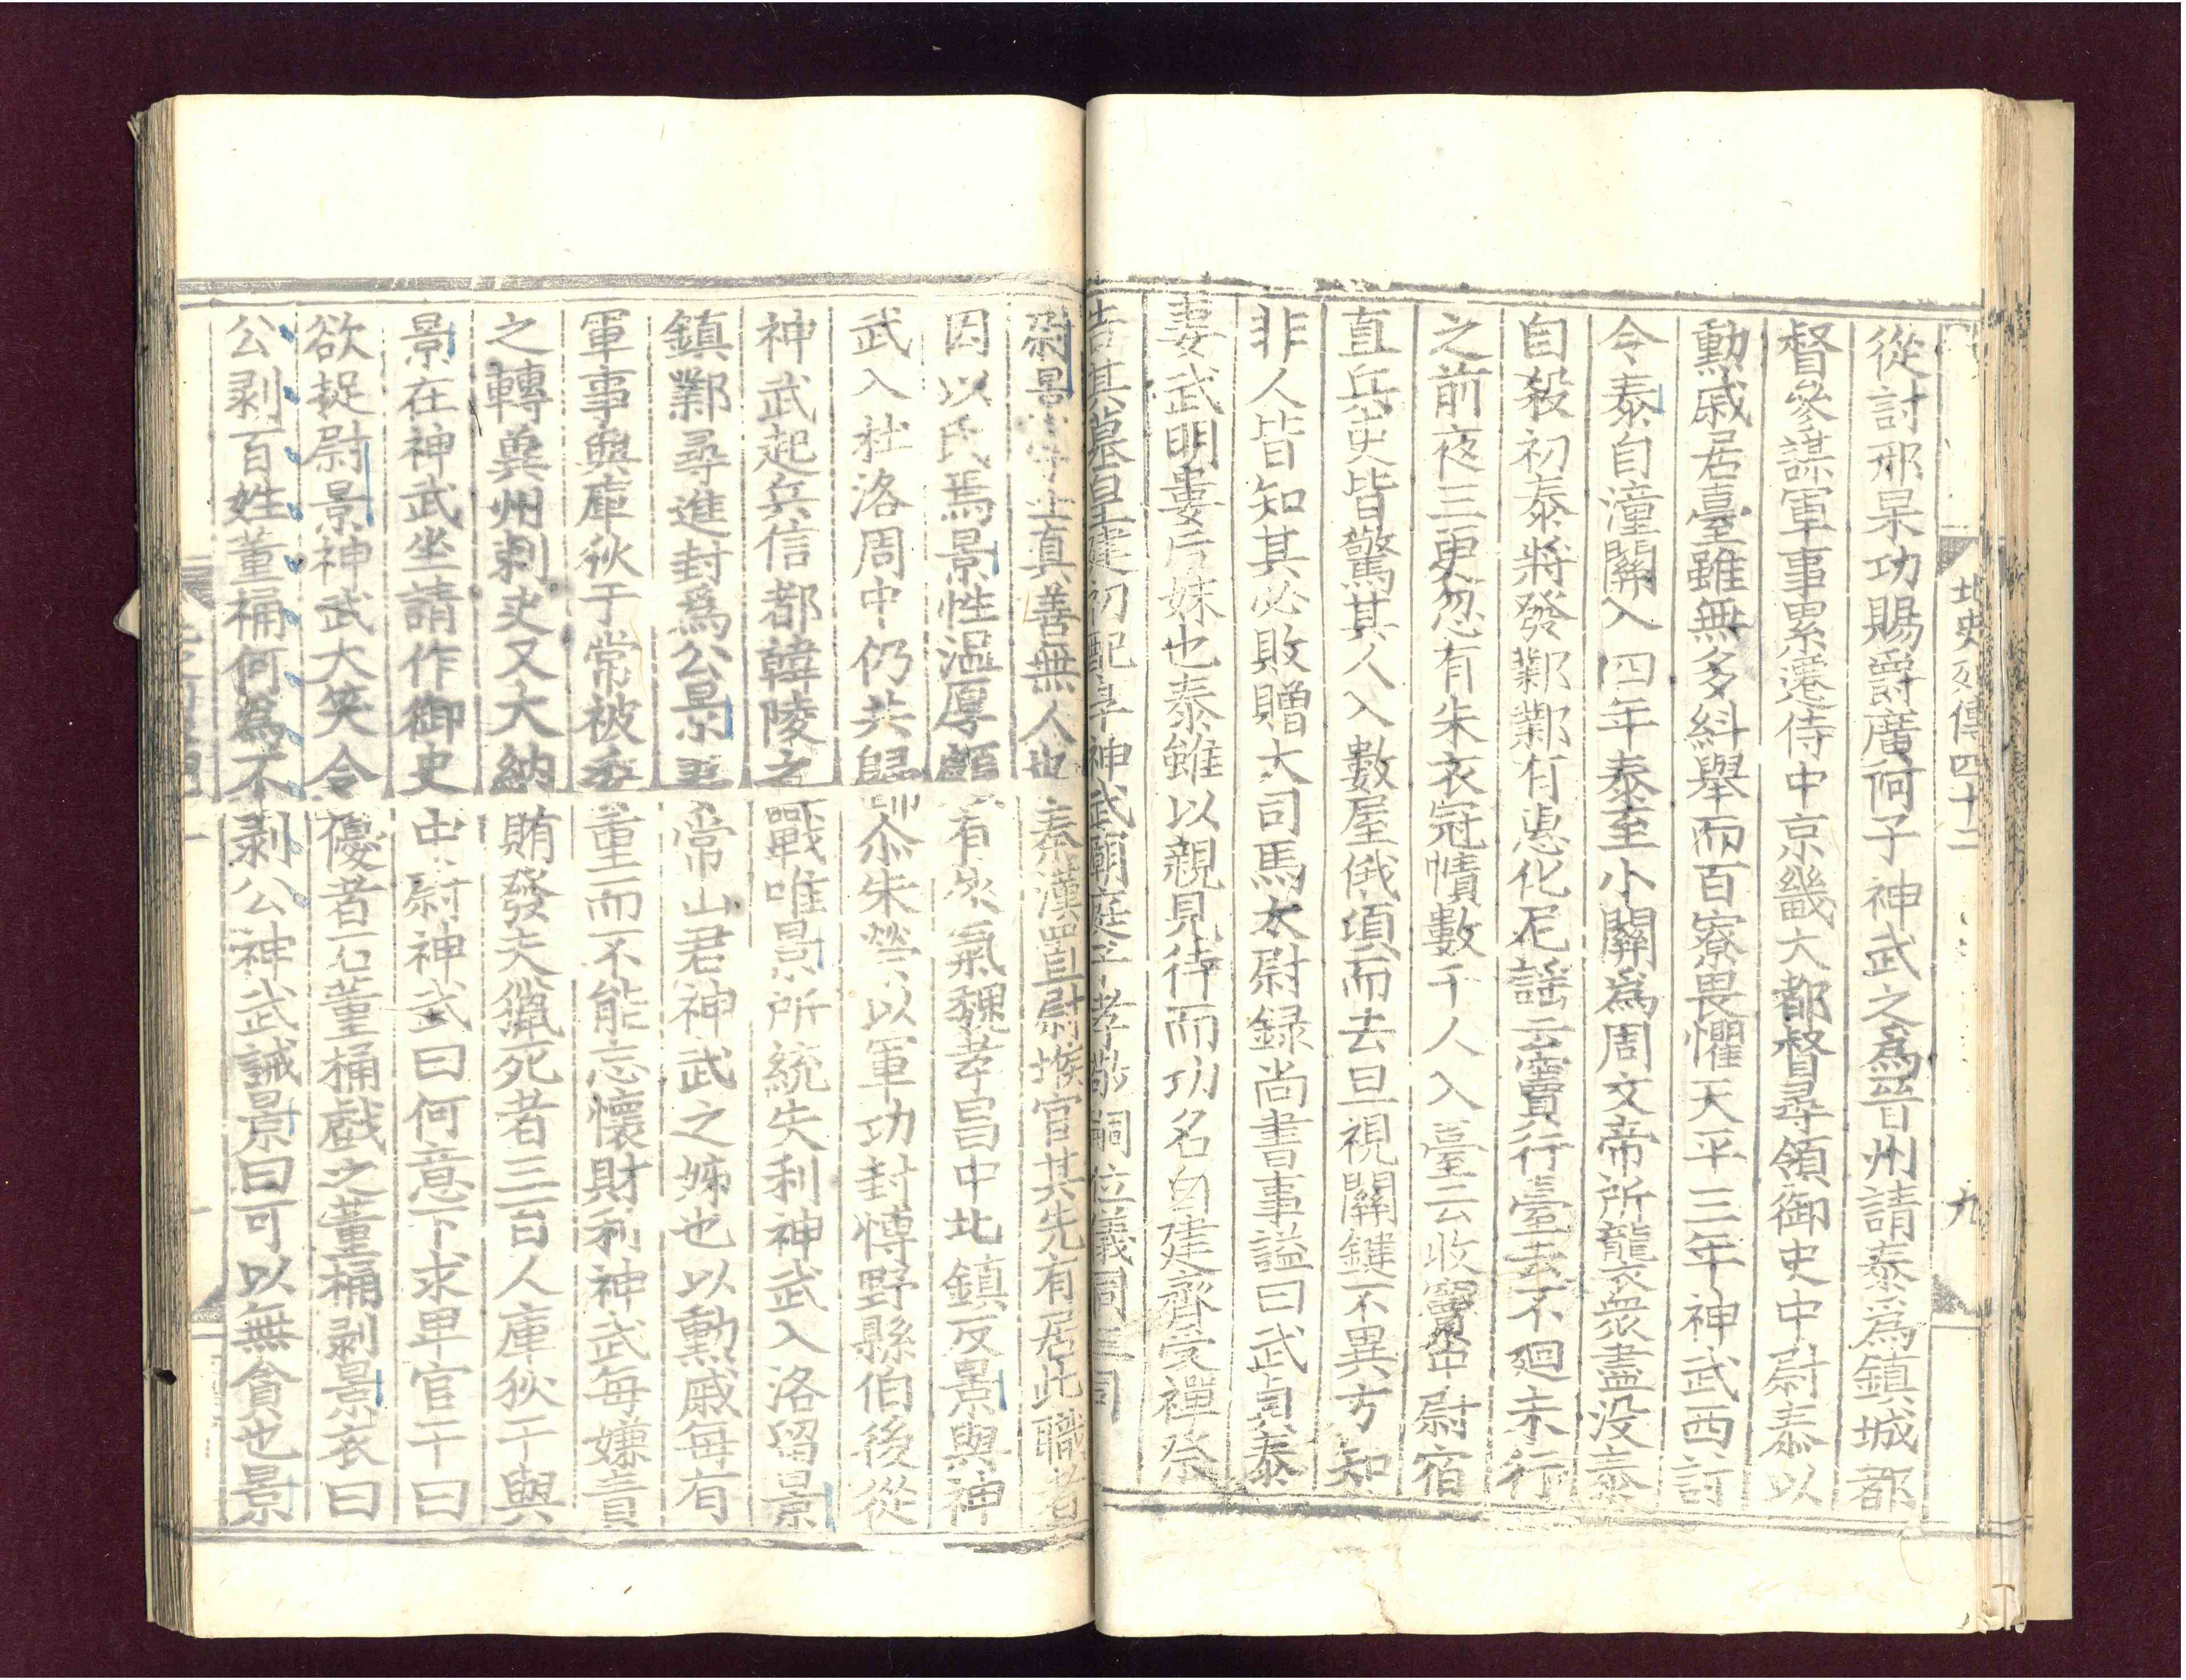 北史列傳四十二
九
從討邢杲功賜爵廣何子神武之爲晉州請泰爲鎮城都
督參謀軍事累遷侍中京畿大都督尋領御史中尉泰以
勳戚居臺雖無多糾舉而百寮畏懼天平三年神武西討
令泰自潼關入四年泰至小關爲周文帝所龍衣衆盡没泰
自殺初泰將發鄴鄴有惠化尼謡云竇行臺去不廻未行
之前夜三更忽有朱衣冠幘數千人入臺云收竇中尉宿
直兵吏皆驚其人入數屋俄頃而去旦視關鍵不異方知
非人皆知其必敗贈大司馬太尉録尚書事謚曰武貞泰
妻武明婁后妹也泰雖以親見待而功名自建齊受禪祭
告其墓皇建初配享神武廟庭子孝敬嗣位儀同三司
尉景字士真善無人也秦漢置尉堠官其先有居此職者
因以氏焉景性温厚頗有俠氣魏孝昌中北鎮反景與神
武入杜洛周中仍共歸尒朱榮以軍功封博野縣伯後從
神武起兵信都韓陵之戰唯景所統失利神武入洛留景
鎮鄴尋進封爲公景妻常山君神武之姊也以勳戚每有
軍事與庫狄干常被委重而不能忘懷財利神武每嫌責
之轉冀州刺史又大納賄發夫獵死者三百人庫狄干與
景在神武坐請作御史中尉神武曰何意下求卑官干曰
欲捉尉景神武大笑令優者石董桶戲之董桶剥景衣曰
公剥百姓董桶何爲不剥公神武誡景曰可以無貪也景